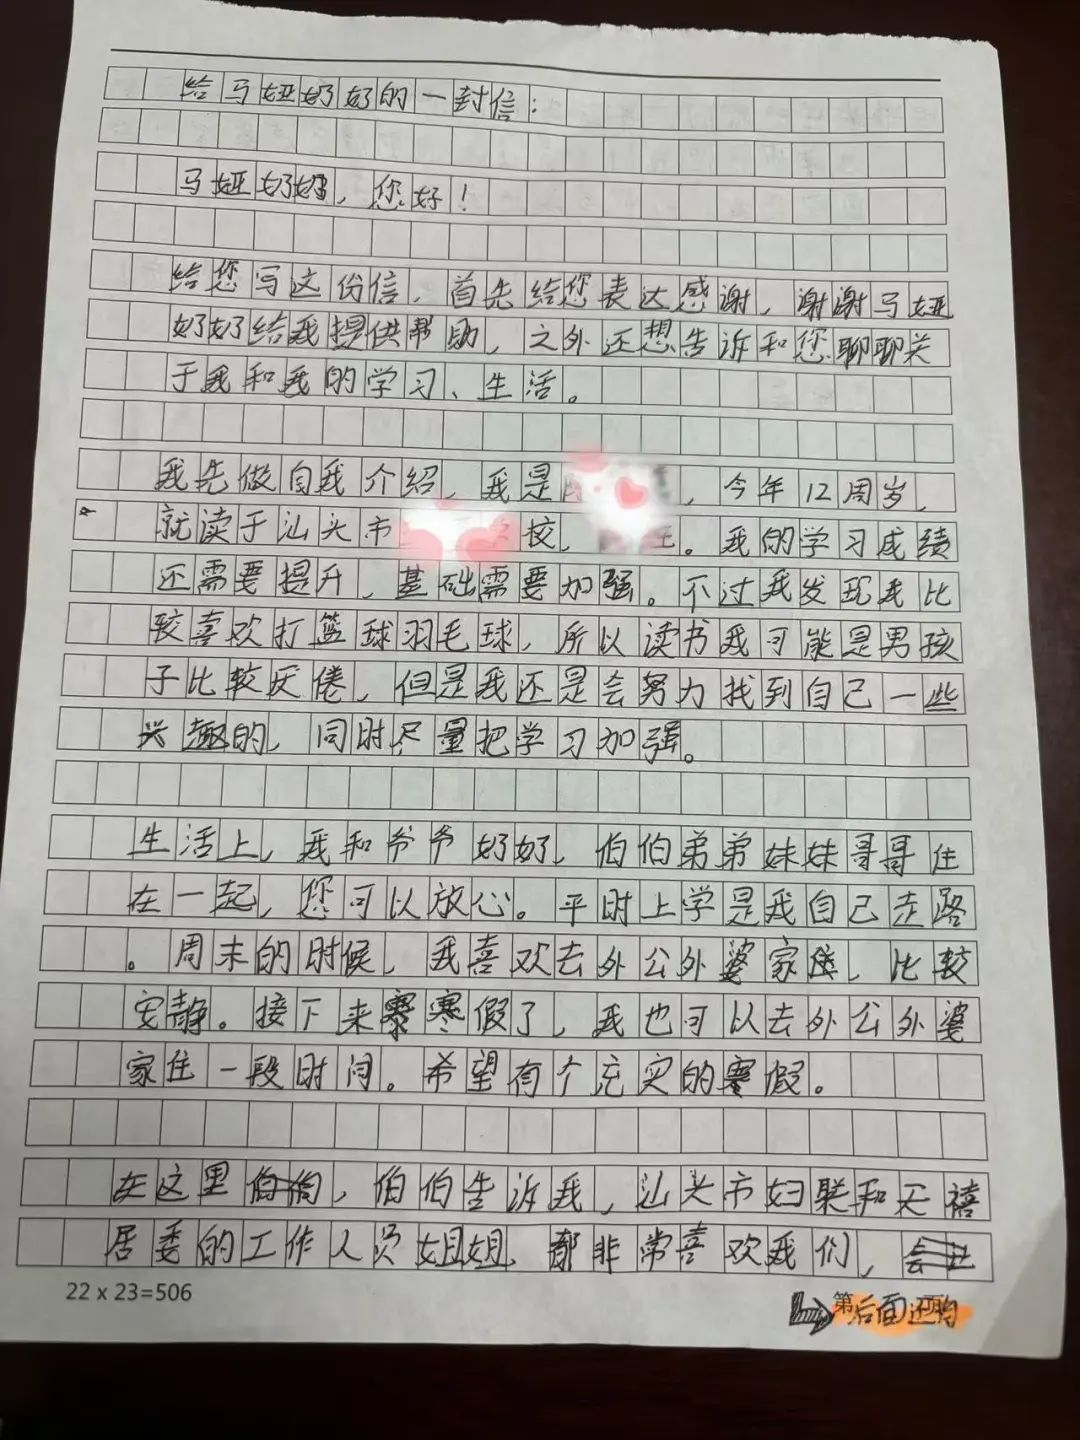 给马娅奶奶的一封信：
马娅奶奶，您好！
给您写这份信，首先给您表达感谢，谢谢马娅
奶奶给我提供帮助，之外还想告诉和您聊聊关
于我和我的学习、生活。
我先做自我介绍，我是，今年12周岁，
就读于汕头市校，。我的学习成绩
还需要提升，基础需要加强。不过我发现我比
较喜欢打篮球羽毛球，所以读书我可能是男孩
子比较厌倦，但是我还是会努力找到自己一些
兴趣的，同时尽量把学习加强。
生活上，我和爷爷奶奶，伯伯弟弟妹妹哥哥住
在一起，您可以放心。平时上学是我自己走路
。周末的时候，我喜欢去外公外婆家住，比较
安静。接下来寒假了，我也可以去外公外婆
家住一段时间。希望有个充实的寒假。
在这里，伯伯告诉我，汕头市妇联和天禧
居委的工作人员姐姐，都非常喜欢我们，
22 x 23=506
后面还有